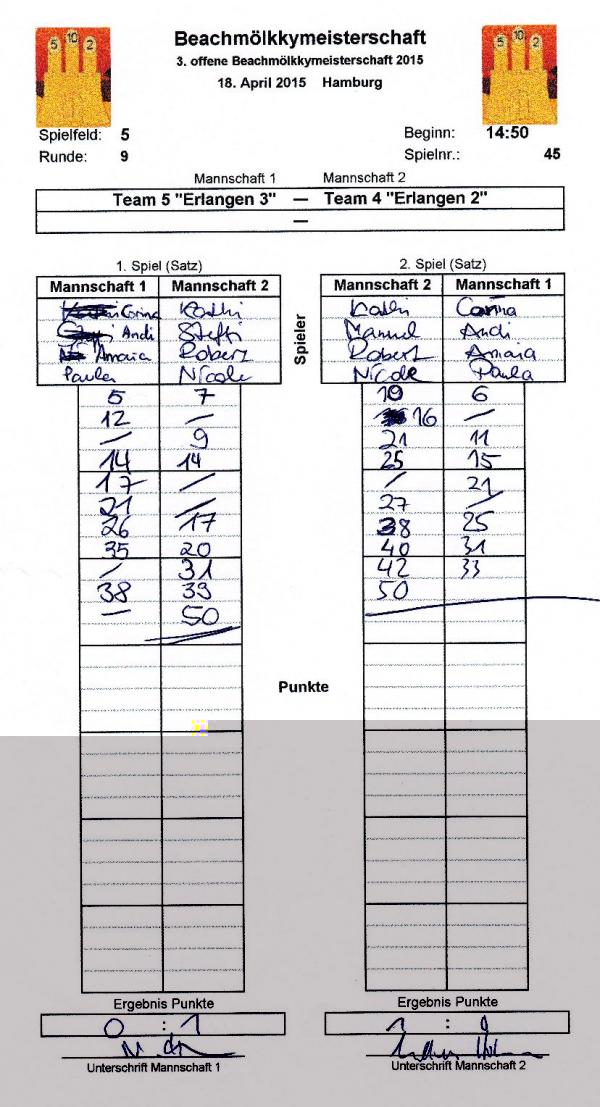 5 10 2
5 10 2
Beachmölkkymeisterschaft
3. offene Beachmölkkymeisterschaft 2015
18. April 2015 Hamburg
Spielfeld: 5 Beginn: 14:50
Runde: 9 Spielnr.: 45
Mannschaft 1 Mannschaft 2
Team 5 "Erlangen 3" — Team 4 "Erlangen 2"
—
1. Spiel (Satz) 2. Spiel (Satz)
Mannschaft 1 Mannschaft 2 Mannschaft 2 Mannschaft 1
Spieler
Corina Kathi Kathi Carina
Andi Steffi Manuel Andi
Amaia Robert Robert Amaia
Paula Nicole Nicole Paula
5 7 10 6
12 — 16 —
— 9 21 11
14 14 25 15
17 — — 21
21 — 27 —
26 17 38 25
35 20 40 31
— 31 42 33
38 39 50
— 50
Punkte
Ergebnis Punkte Ergebnis Punkte
0 : 1 1 : 0
Unterschrift Mannschaft 1 Unterschrift Mannschaft 2